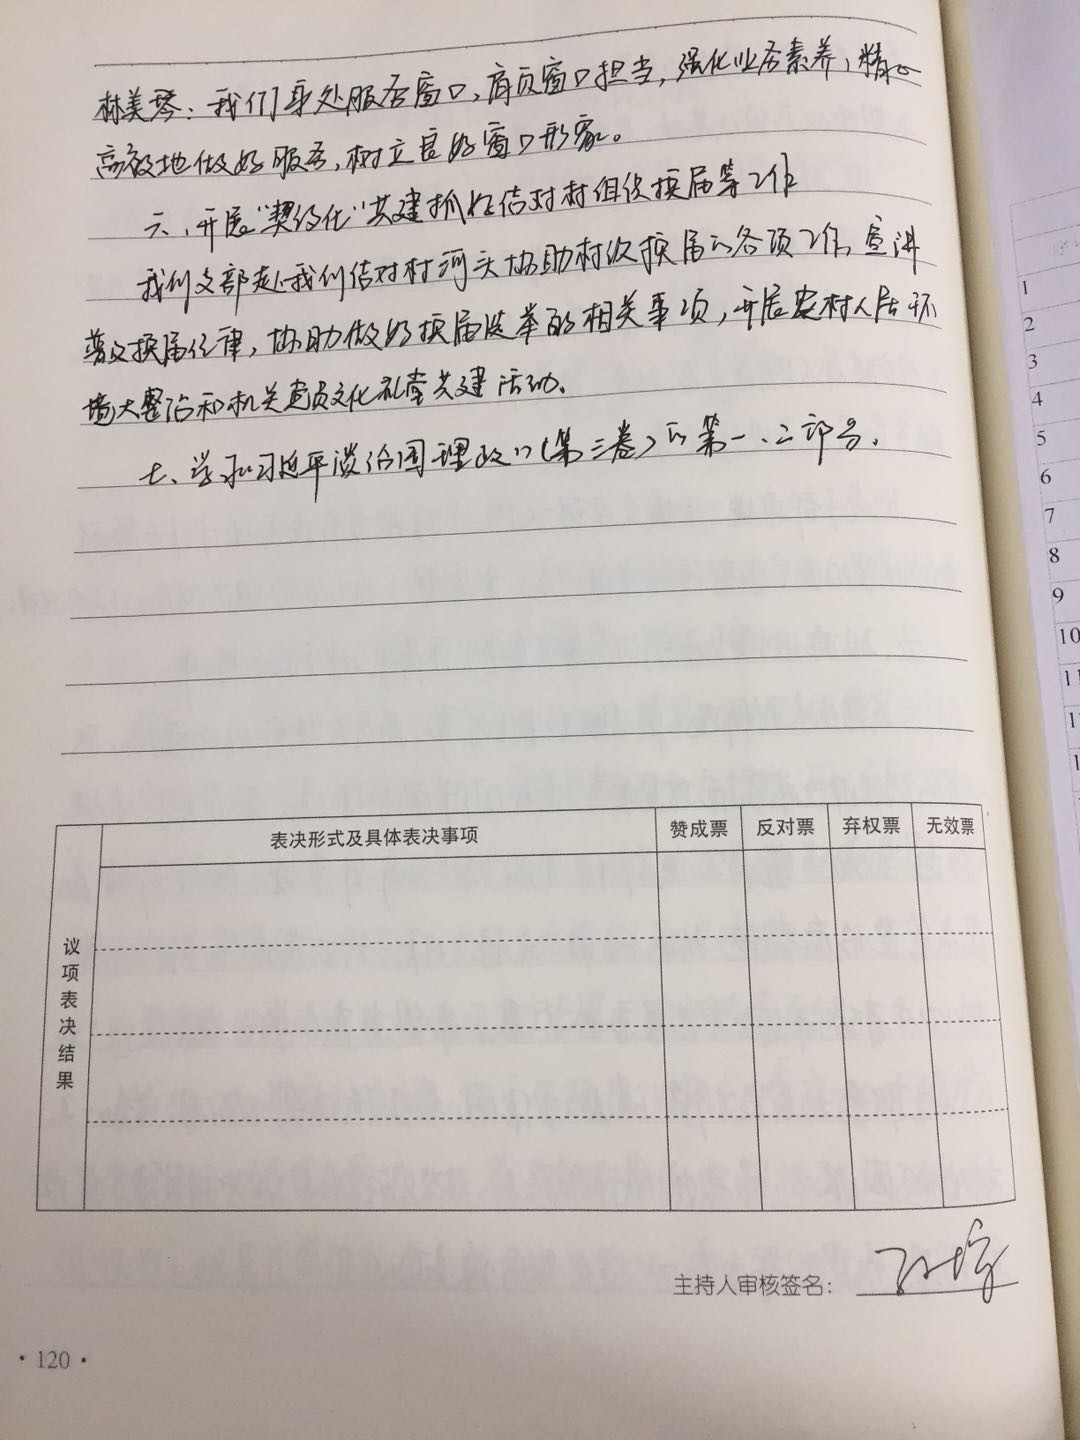 林美琴：我们身处服务窗口，肩负窗口担当，强化业务素养，精心
高效地做好服务，树立良好窗口形象。
六、开展“契约化”共建抓好结对村组织换届等工作
我们支部赴我们结对村河头协助村级换届的各项工作，宣讲
换届纪律，协助做好换届选举的相关事项，开展农村人居环
境大整治和机关党员文化礼堂共建活动。
七、学习习近平谈治国理政（第三卷）的第一、二部分。
议项表决结果
表决形式及具体表决事项 赞成票 反对票 弃权票 无效票
主持人审核签名：
·120·
1
2
3
4
5
6
7
8
9
10